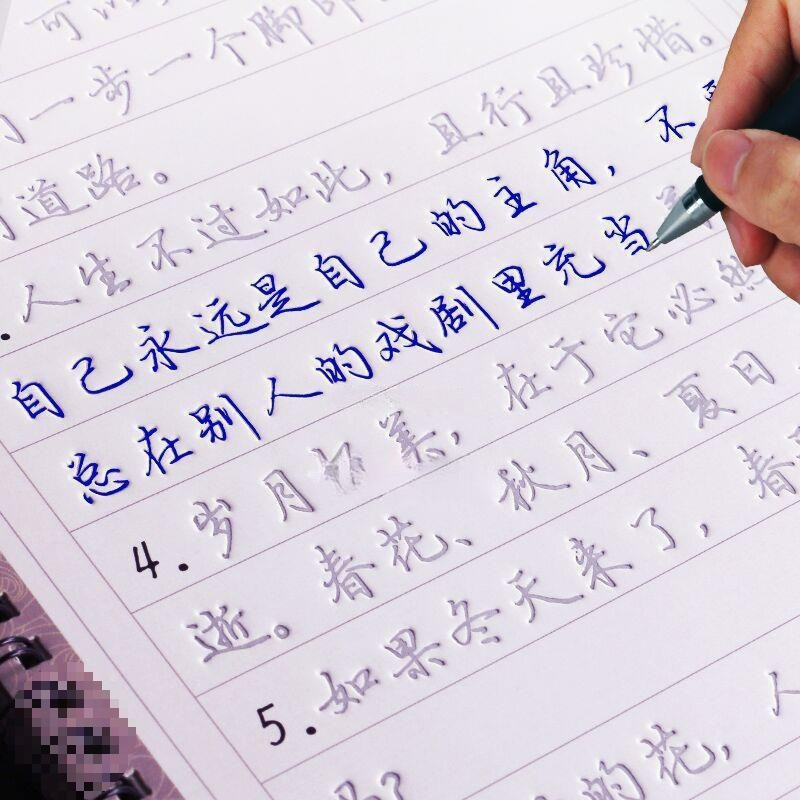 可以
一步一个脚印
道路。
人生不过如此，且行且珍惜。
自己永远是自己的主角，不
总在别人的戏剧里充当
4. 岁月 美，在于它必然
逝。春花、秋月、夏日、
5. 如果冬天来了，春
的花，人